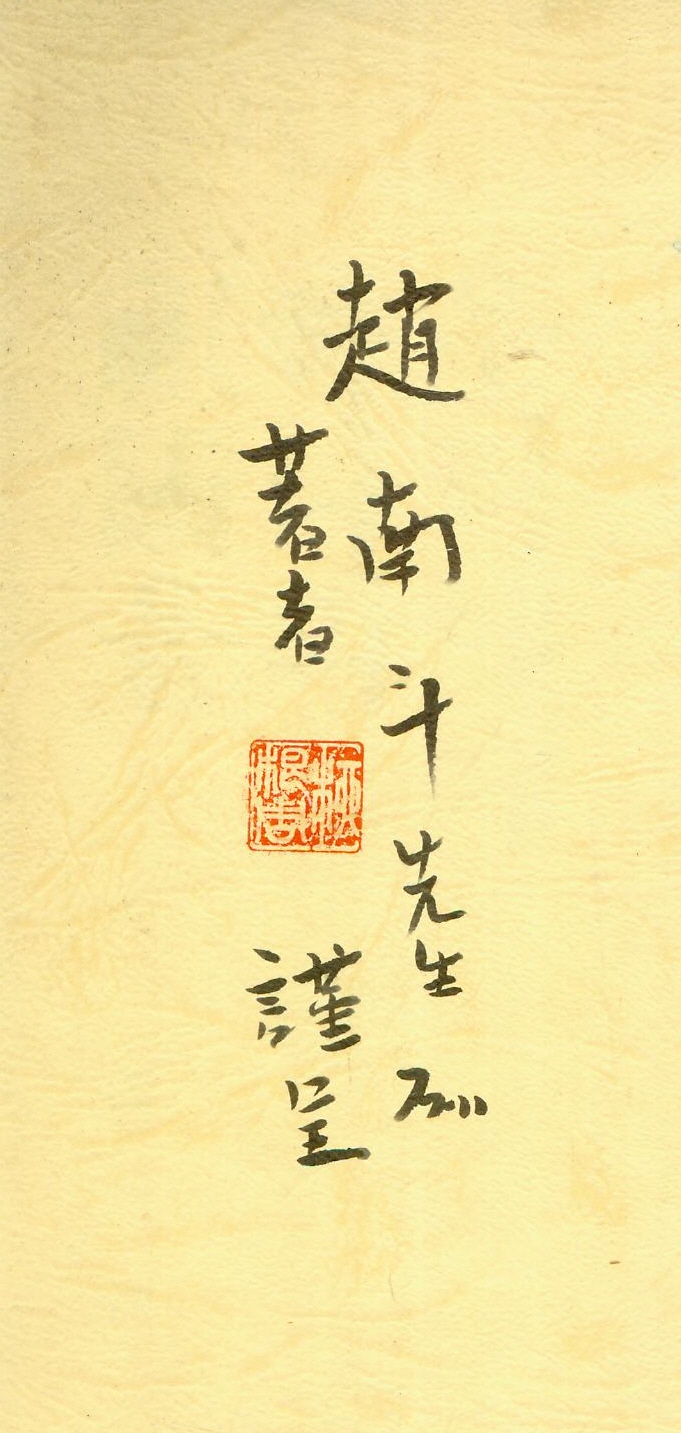 趙南斗先生
著者 謹呈